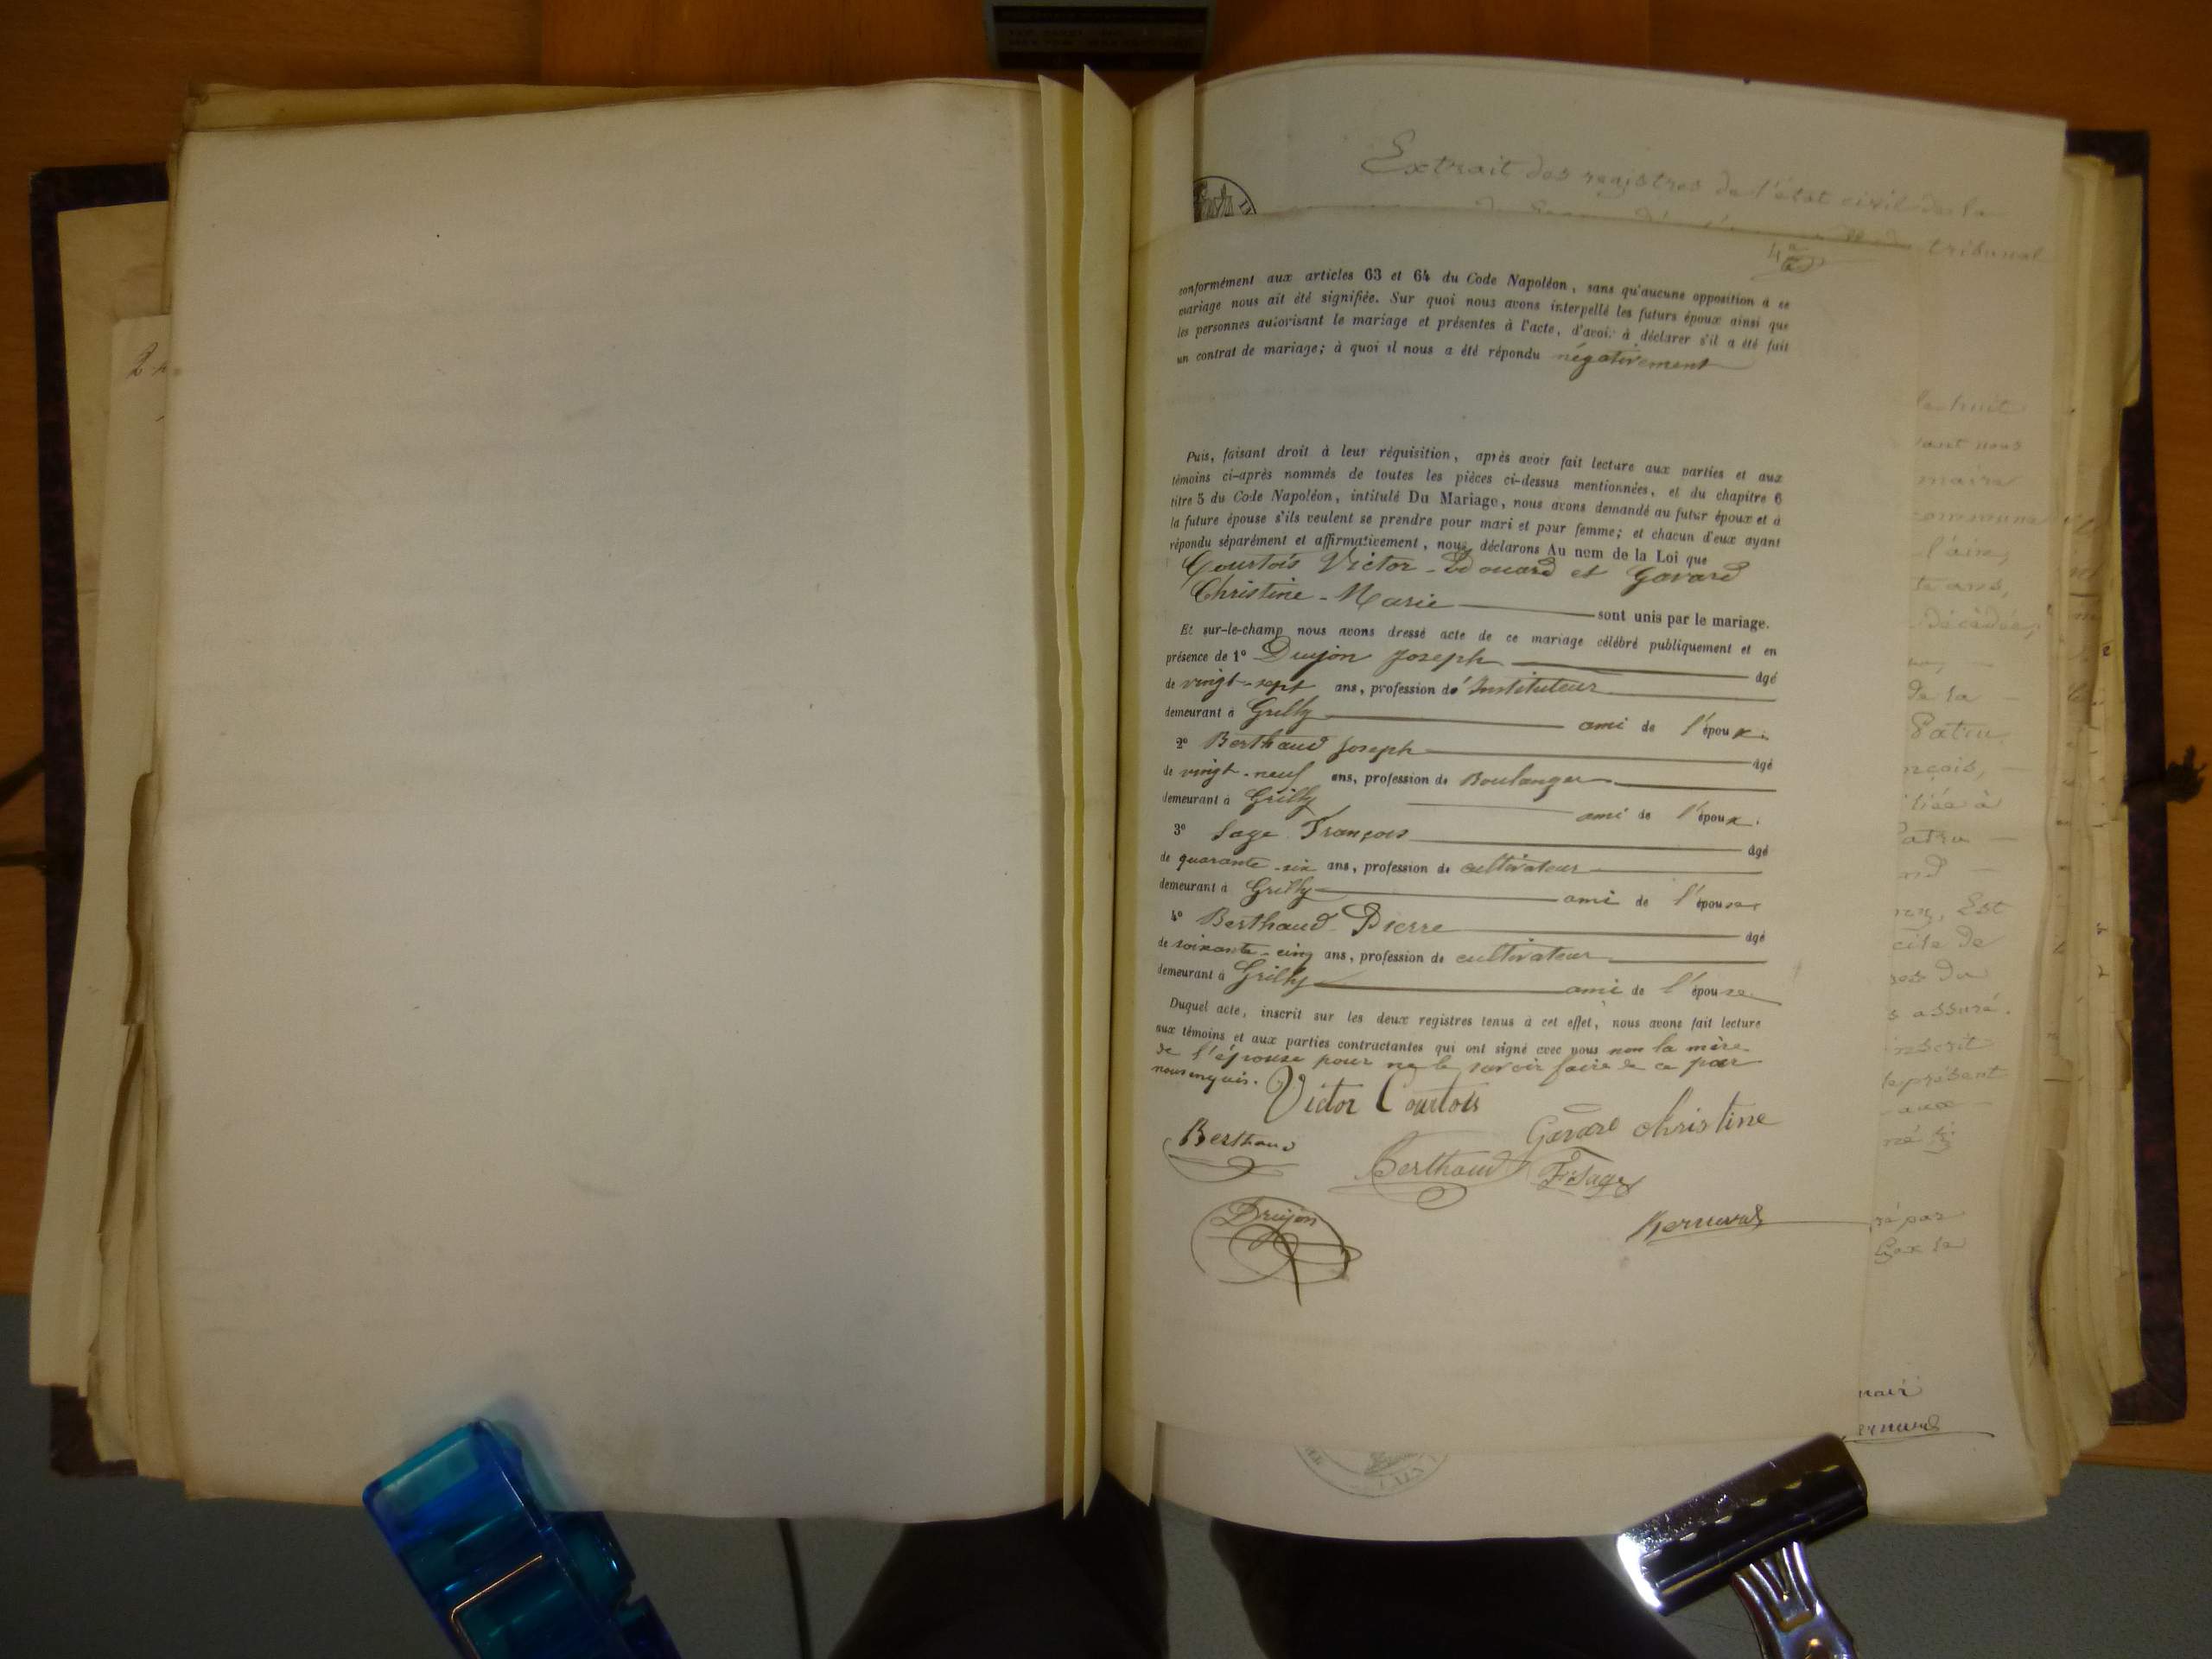 Extrait des registres de l'état civil de la
tribunal
conformément aux articles 63 et 64 du Code Napoléon, sans qu'aucune opposition à ce
mariage nous ait été signifiée. Sur quoi nous avons interpellé les futurs époux ainsi que
les personnes autorisant le mariage et présentes à l'acte, d'avoir à déclarer s'il a été fait
un contrat de mariage; à quoi il nous a été répondu négativement
Puis, faisant droit à leur réquisition, après avoir fait lecture aux parties et aux
témoins ci-après nommés de toutes les pièces ci-dessus mentionnées, et du chapitre 6
titre 5 du Code Napoléon, intitulé Du Mariage, nous avons demandé au futur époux et à
la future épouse s'ils veulent se prendre pour mari et pour femme; et chacun d'eux ayant
répondu séparément et affirmativement, nous déclarons Au nom de la Loi que
Courtois Victor-Edouard et Gavard
Christine-Marie sont unis par le mariage.
Et sur-le-champ nous avons dressé acte de ce mariage célébré publiquement et en
présence de 1° Drujon Joseph âgé
de vingt-sept ans, profession d'Instituteur
demeurant à Grilly ami de l'époux.
2° Berthaud Joseph âgé
de vingt-neuf ans, profession de Boulanger
demeurant à Grilly ami de l'époux.
3° Sage François âgé
de quarante-six ans, profession de cultivateur
demeurant à Grilly ami de l'épouse
4° Berthaud Pierre âgé
de soixante-cinq ans, profession de cultivateur
demeurant à Grilly ami de l'épouse
Duquel acte, inscrit sur les deux registres tenus à cet effet, nous avons fait lecture
aux témoins et aux parties contractantes qui ont signé avec nous non la mère
de l'épouse pour ne le savoir faire de ce par
nous enquis.
Victor Courtois
Gavard Christine
Berthaud
Berthaud
F. Sage
Drujon
le huit
vant nous
maire
commune
l'ain,
te ans,
décédée,
de la
Patru
nçais,
liée à
Patru
Est
cile de
res du
s assuré.
inscrit
le présent
aux
ré par
Gex le